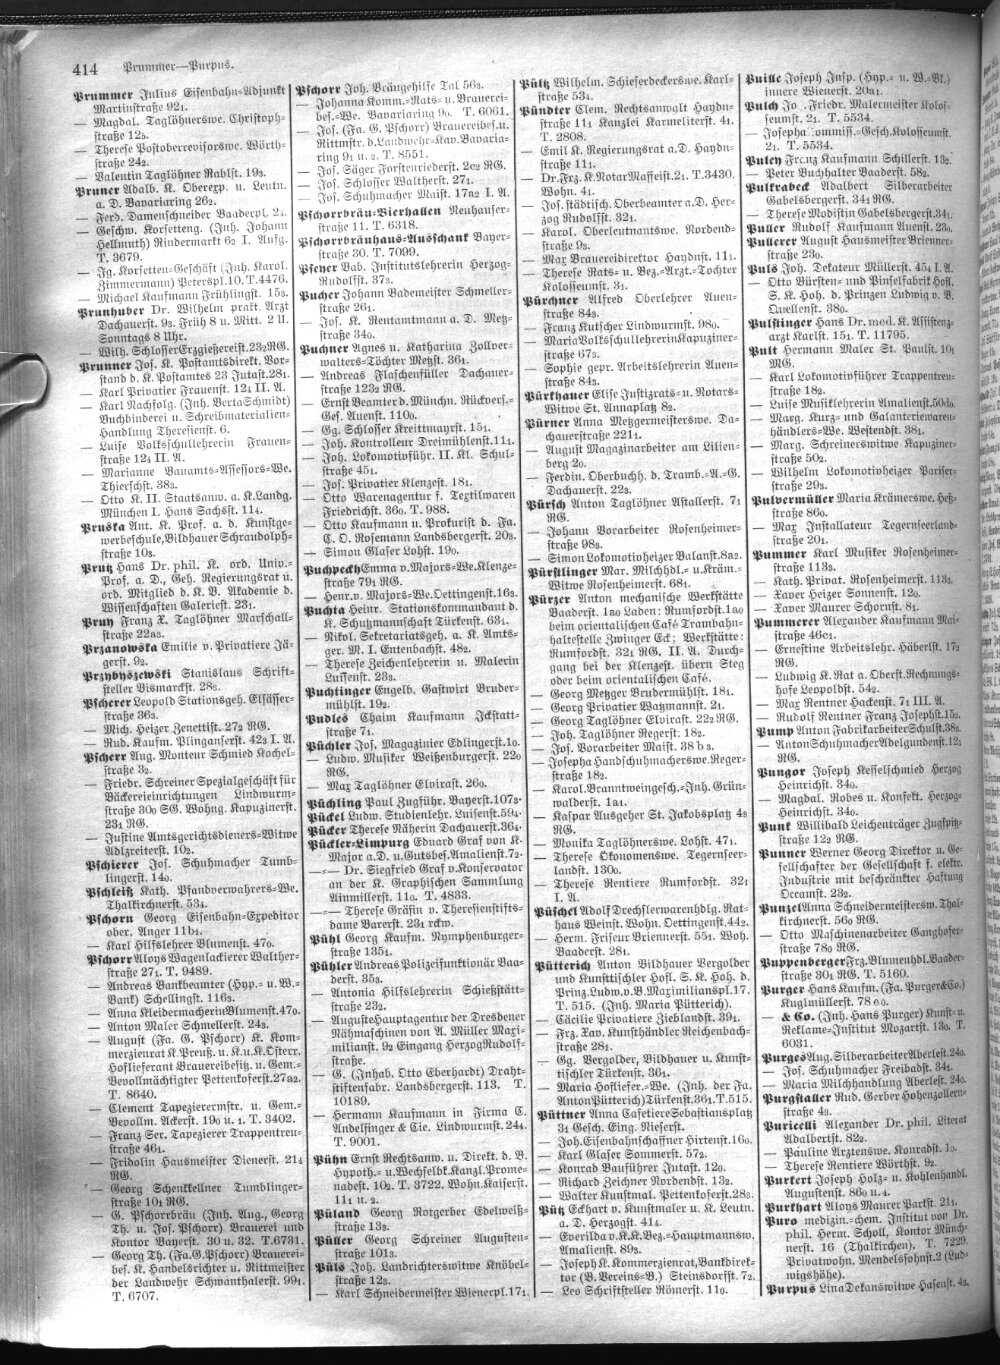 414 Prummer—Purpus.
Prummer Julius Eisenbahn-Adjunkt
Martinstraße 92₁.
— Magdal. Taglöhnerswe. Christoph-
straße 12₃.
— Therese Postoberrevisorswe. Wörth-
straße 24₂.
— Valentin Taglöhner Rablst. 19₃.
Pruner Adalb. K. Oberexp. u. Leutn.
a. D. Bavariaring 26₂.
— Ferd. Damenschneider Baaderpl. 2₁.
— Geschw. Korsetteng. (Inh. Johann
Hellmuth) Rindermarkt 6₂ I. Aufg.
T. 3679.
— Jg. Korsetten-Geschäft (Inh. Karol.
Zimmermann) Peterspl. 10. T. 4476.
— Michael Kaufmann Frühlingst. 15₃.
Prunhuber Dr. Wilhelm prakt. Arzt
Dachauerst. 9₃. Früh 8 u. Mitt. 2 U.
Sonntags 8 Uhr.
— Wilh. Schlosser Erzgießereist. 23₂ RG.
Prunner Jos. K. Postamtsdirekt. Vor-
stand d. K. Postamtes 23 Jutast. 28₁.
— Karl Privatier Frauenst. 12₄ II. A.
— Karl Nachfolg. (Inh. Berta Schmidt)
Buchbinderei u. Schreibmaterialien-
Handlung Theresienst. 6.
— Luise Volksschullehrerin Frauen-
straße 12₄ II. A.
— Marianne Bauamts-Assessors-We.
Thierschst. 38₃.
— Otto K. II. Staatsanw. a. K. Landg.
München I. Hans Sachsst. 11₄.
Pruska Ant. K. Prof. a. d. Kunstge-
werbeschule, Bildhauer Schraudolph-
straße 10₃.
Prutz Hans Dr. phil. K. ord. Univ.-
Prof. a. D., Geh. Regierungsrat u.
ord. Mitglied d. K. B. Akademie d.
Wissenschaften Galeriest. 23₁.
Pruy Franz X. Taglöhner Marschall-
straße 22a₃.
Przanowska Emilie v. Privatiere Jä-
gerst. 9₂.
Przybyszewski Stanislaus Schrift-
steller Bismarckst. 28₃.
Pscherer Leopold Stationsgeh. Elsässer-
straße 36₃.
— Mich. Heizer Zenettist. 27₂ RG.
— Rud. Kaufm. Plinganserst. 42₃ I. A.
Pscherr Aug. Monteur Schmied Kochel-
straße 3₂.
— Friedr. Schreiner Spezialgeschäft für
Bäckereieinrichtungen Lindwurm-
straße 30₀ SG. Wohng. Kapuzinerst.
23₁ RG.
— Justine Amtsgerichtsdieners-Witwe
Adlzreiterst. 10₂.
Pschierer Jos. Schuhmacher Tumb-
lingerst. 14₀.
Pschleiß Kath. Pfandverwahrers-We.
Thalkirchnerst. 53₄.
Pschorn Georg Eisenbahn-Expeditor
ober. Anger 11b₁.
— Karl Hilfslehrer Blumenst. 47₀.
Pschorr Aloys Wagenlackierer Walther-
straße 27₁. T. 9489.
— Andreas Bankbeamter (Hyp.- u. W.-
Bank) Schellingst. 116₃.
— Anna Kleidermacherin Blumenst. 47₀.
— Anton Maler Schmellerst. 24₃.
— August (Fa. G. Pschorr) K. Kom-
merzienrat K. Preuß. u. K. u. K. Österr.
Hoflieferant Brauereibesitz. u. Gem.-
Bevollmächtigter Pettenkoferst. 27a₂.
T. 8640.
— Clement Tapezierermstr. u. Gem.-
Bevollm. Ackerst. 19₀ u. ₁. T. 3402.
— Franz Ser. Tapezierer Trappentreu-
straße 46₁.
— Fridolin Hausmeister Dienerst. 21₄
RG.
— Georg Schenkkellner Tumblinger-
straße 10₁ RG.
— G. Pschorrbräu (Inh. Aug., Georg
Th. u. Jos. Pschorr) Brauerei und
Kontor Bayerst. 30 u. 32. T. 6731.
— Georg Th. (Fa. G. Pschorr) Brauerei-
bes. K. Handelsrichter u. Rittmeister
der Landwehr Schwanthalerst. 99₁.
T. 6707.
Pschorr Joh. Bräugehilfe Tal 56₃.
— Johanna Komm.-Rats- u. Brauerei-
bes.-We. Bavariaring 9₀. T. 6061.
— Jos. (Fa. G. Pschorr) Brauereibes. u.
Rittmstr. d. Landwehr-Kav. Bavaria-
ring 9₁ u. ₂. T. 8551.
— Jos. Säger Forstenriederst. 2c₂ RG.
— Jos. Schlosser Waltherst. 27₁.
— Jos. Schuhmacher Maist. 17a₂ I. A.
Pschorrbräu-Bierhallen Neuhauser-
straße 11. T. 6318.
Pschorrbräuhaus-Ausschank Bayer-
straße 30. T. 7099.
Psener Bab. Institutslehrerin Herzog-
Rudolfst. 37₃.
Pucher Johann Bademeister Schmeller-
straße 26₁.
— Jos. K. Rentamtmann a. D. Metz-
straße 34₀.
Puchner Agnes u. Katharina Zollver-
walters-Töchter Metzst. 36₁.
— Andreas Flaschenfüller Dachauer-
straße 123₂ RG.
— Ernst Beamter d. Münchn. Rückvers.-
Ges. Auenst. 110₀.
— Gg. Schlosser Kreittmayrst. 15₁.
— Joh. Kontrolleur Dreimühlenst. 11₄.
— Joh. Lokomotivführ. II. Kl. Schul-
straße 45₁.
— Jos. Privatier Klenzest. 18₁.
— Otto Warenagentur f. Textilwaren
Friedrichst. 36₀. T. 988.
— Otto Kaufmann u. Prokurist d. Fa.
C. O. Rosemann Landsbergerst. 20₃.
— Simon Glaser Lohst. 19₀.
Puchpeckh Emma v. Majors-We. Klenze-
straße 79₁ RG.
— Henr. v. Majors-We. Oettingenst. 16₃.
Puchta Heinr. Stationskommandant d.
K. Schutzmannschaft Türkenst. 63₁.
— Nikol. Sekretariatsgeh. a. K. Amts-
ger. M. I. Entenbachst. 48₂.
— Therese Zeichenlehrerin u. Malerin
Luisenst. 23₃.
Puchtinger Engelb. Gastwirt Bruder-
mühlst. 19₂.
Pudles Chaim Kaufmann Ickstatt-
straße 7₁.
Püchler Jos. Magazinier Edlingerst. 1₀.
— Ludw. Musiker Weißenburgerst. 22₀
RG.
— Max Taglöhner Elvirast. 26₀.
Püchling Paul Zugführ. Bayerst. 107₃.
Pückel Ludw. Studienlehr. Luisenst. 59₄.
Pücker Therese Näherin Dachauerst. 36₄.
Pückler-Limpurg Eduard Graf von K.
Major a. D. u. Gutsbes. Amalienst. 7₂.
—— Dr. Siegfried Graf v. Konservator
an der K. Graphischen Sammlung
Ainmillerst. 11₀. T. 4833.
—— Therese Gräfin v. Theresienstifts-
dame Barerst. 23₁ rckw.
Pühl Georg Kaufm. Nymphenburger-
straße 135₁.
Pühler Andreas Polizeifunktionär Baa-
derst. 35₃.
— Antonia Hilfslehrerin Schießstätt-
straße 23₂.
— Auguste Hauptagentur der Dresdener
Nähmaschinen von A. Müller Maxi-
milianst. 9₂ Eingang Herzog Rudolf-
straße.
— G. (Inhab. Otto Eberhardt) Draht-
stiftenfabr. Landsbergerst. 113. T.
10189.
— Hermann Kaufmann in Firma C.
Andelfinger & Cie. Lindwurmst. 24₄.
T. 9001.
Pühn Ernst Rechtsanw. u. Direkt. d. B.
Hypoth.- u. Wechselbk. Kanzl. Prome-
nadest. 10₂. T. 3722. Wohn. Kaiserst.
11₁ u. ₂.
Püland Georg Rotgerber Edelweiß-
straße 13₃.
Püller Georg Schreiner Augusten-
straße 101₃.
Püls Joh. Landrichterswitwe Knöbel-
straße 12₃.
— Karl Schneidermeister Wienerpl. 17₁.
Pültz Wilhelm. Schieferdeckerswe. Karl-
straße 53₄.
Pündter Clem. Rechtsanwalt Haydn-
straße 11₁ Kanzlei Karmeliterst. 4₁.
T. 2808.
— Emil K. Regierungsrat a. D. Haydn-
straße 11₁.
— Dr. Frz. K. Notar Maffeist. 2₁. T. 3430.
Wohn. 4₁.
— Jos. städtisch. Oberbeamter a. D. Her-
zog Rudolfst. 32₁.
— Karol. Oberleutnantswe. Nordend-
straße 9₃.
— Max Brauereidirektor Haydnst. 11₁.
— Therese Rats- u. Bez.-Arzt.-Tochter
Kolosseumst. 3₁.
Pürchner Alfred Oberlehrer Auen-
straße 84₃.
— Franz Kutscher Lindwurmst. 98₀.
— Maria Volksschullehrerin Kapuziner-
straße 67₃.
— Sophie gepr. Arbeitslehrerin Auen-
straße 84₃.
Pürkhauer Elise Justizrats- u. Notars-
Witwe St. Annaplatz 8₂.
Pürner Anna Metzgermeisterswe. Da-
chauerstraße 221₁.
— August Magazinarbeiter am Lilien-
berg 2₀.
— Ferdin. Oberbuchh. d. Tramb.-A.-G.
Dachauerst. 22₃.
Pürsch Anton Taglöhner Astallerst. 7₁
RG.
— Johann Vorarbeiter Rosenheimer-
straße 98₃.
— Simon Lokomotivheizer Balanst. 8a₂.
Pürstlinger Mar. Milchhdl.- u. Kräm.-
Witwe Rosenheimerst. 68₁.
Pürzer Anton mechanische Werkstätte
Baaderst. 1a₀ Laden: Rumfordst. 1a₀
beim orientalischen Café Trambahn-
haltestelle Zwinger Eck; Werkstätte:
Rumfordst. 32₁ RG. II. A. Durch-
gang bei der Klenzest. übern Steg
oder beim orientalischen Café.
— Georg Metzger Brudermühlst. 18₁.
— Georg Privatier Watzmannst. 2₁.
— Georg Taglöhner Elvirast. 22₂ RG.
— Joh. Taglöhner Regerst. 18₂.
— Jos. Vorarbeiter Maist. 38b₃.
— Josepha Handschuhmacherswe. Reger-
straße 18₂.
— Karol. Branntweingesch.-Inh. Grün-
walderst. 1a₁.
— Kaspar Ausgeher St. Jakobsplatz 4₃
RG.
— Monika Taglöhnerswe. Lohst. 47₁.
— Therese Ökonomenswe. Tegernseer-
landst. 130₀.
— Therese Rentiere Rumfordst. 32₁
I. A.
Püschel Adolf Drechslerwarenhdlg. Rat-
haus Weinst. Wohn. Oettingenst. 44₂.
— Herm. Friseur Briennerst. 55₁. Woh.
Baaderst. 28₁.
Pütterich Anton Bildhauer Vergolder
und Kunsttischler Hofl. S. K. Hoh. d.
Prinz. Ludw. v. B. Maximilianspl. 17.
T. 515. (Inh. Maria Pütterich).
— Cäcilie Privatiere Zieblandst. 39₁.
— Frz. Xav. Kunsthändler Reichenbach-
straße 28₁.
— Gg. Vergolder, Bildhauer u. Kunst-
tischler Türkenst. 36₁.
— Maria Hoflifer.-We. (Inh. der Fa.
Anton Pütterich) Türkenst. 36₁. T. 515.
Püttner Anna Cafetiere Sebastiansplatz
3₁ Gesch. Eing. Nieserst.
— Joh. Eisenbahnschaffner Hirtenst. 16₀.
— Karl Glaser Sommerst. 57₂.
— Konrad Bauführer Jutast. 12₀.
— Richard Zeichner Nordendst. 13₂.
— Walter Kunstmal. Pettenkoferst. 28₃.
Pütz Eckhart v. Kunstmaler u. K. Leutn.
a. D. Herzogst. 41₄.
— Everilda v. K. K. Bez.-Hauptmannsw.
Amalienst. 89₃.
— Joseph K. Kommerzienrat, Bankdirek-
tor (B. Vereins-B.) Steinsdorfst. 7₂.
— Leo Schriftsteller Römerst. 11₀.
Puille Joseph Insp. (Hyp.- u. W.-Bk.)
innere Wienerst. 20a₁.
Pulch Jo. Friedr. Malermeister Kolos-
seumst. 2₁. T. 5534.
— Josepha Kommiss.-Gesch. Kolosseumst.
2₁. T. 5534.
Puley Franz Kaufmann Schillerst. 13₂.
— Peter Buchhalter Baaderst. 58₂.
Pulkrabeck Adalbert Silberarbeiter
Gabelsbergerst. 34₁ RG.
— Therese Modistin Gabelsbergerst. 34₁.
Puller Rudolf Kaufmann Auenst. 23₀.
Pullerer August Hausmeister Brienner-
straße 23₀.
Puls Joh. Dekateur Müllerst. 45₄ I. A.
— Otto Bürsten- und Pinselfabrik Hofl.
S. K. Hoh. d. Prinzen Ludwig v. B.
Luisenst. 38₀.
Pulstinger Hans Dr. med. K. Assistenz-
arzt Karlst. 15₁. T. 11795.
Pult Hermann Maler St. Paulst. 10₁
RG.
— Karl Lokomotivführer Trappentreu-
straße 18₂.
— Luise Musiklehrerin Amalienst. 50d₀.
— Marg. Kurz- und Galanteriewaren-
händlers-We. Westendst. 38₁.
— Marg. Schreinerswitwe Kapuziner-
straße 50₂.
— Wilhelm Lokomotivheizer Pariser-
straße 29₃.
Pulvermüller Maria Krämerswe. Heß-
straße 86₀.
— Max Installateur Tegernseerland-
straße 20₁.
Pummer Karl Musiker Rosenheimer-
straße 113₃.
— Kath. Privat. Rosenheimerst. 113₃.
— Xaver Heizer Sonnenst. 12₀.
— Xaver Maurer Schornst. 8₁.
Pummerer Alexander Kaufmann Mai-
straße 46c₁.
— Ernestine Arbeitslehr. Häberlst. 17₂
RG.
— Ludwig K. Rat a. Oberst. Rechnungs-
hofe Leopoldst. 54₂.
— Max Rentner Hackenst. 7₁ III. A.
— Rudolf Rentner Franz Josephst. 15₂.
Pump Anton Fabrikarbeiter Schulst. 38₃.
— Anton Schuhmacher Adelgundenst. 12₁
RG.
Pungor Joseph Kesselschmied Herzog
Heinrichst. 34₀.
— Magdal. Robes u. Konfekt. Herzog-
Heinrichst. 34₀.
Punk Willibald Leichenträger Zugspitz-
straße 12₂ RG.
Punner Werner Georg Direktor u. Ge-
sellschafter der Gesellschaft f. elektr.
Industrie mit beschränkter Haftung
Occamst. 23₂.
Punzel Anna Schneidermeistersw. Thal-
kirchnerst. 56₀ RG.
— Otto Maschinenarbeiter Ganghofer-
straße 78₀ RG.
Puppenberger Frz. Blumenhdl. Baader-
straße 30₁ RG. T. 5160.
Purger Hans Kaufm. (Fa. Purger & Co.)
Kuglmüllerst. 78e₀.
— & Co. (Inh. Hans Purger) Kunst- u.
Reklame-Institut Mozartst. 13₀. T.
6031.
Purges Aug. Silberarbeiter Aberlest. 24₀.
— Jos. Schuhmacher Freibadst. 34₁.
— Maria Milchhandlung Aberlest. 24₀.
Purgstaller Rud. Gerber Hohenzollern-
straße 4₃.
Puricelli Alexander Dr. phil. Literat
Adalbertst. 82₂.
— Pauline Arztenswe. Konradst. 1₀.
— Therese Rentiere Wörthst. 9₂.
Purkert Joseph Holz- u. Kohlenhandl.
Augustenst. 86₀ u. ₄.
Purkhart Aloys Maurer Parkst. 21₁.
Puro medizin.-chem. Institut von Dr.
phil. Herm. Scholl, Kontor Münch-
nerst. 16 (Thalkirchen). T. 7229.
Privatwohn. Mendelssohnst. 2 (Lud-
wigshöhe).
Purpus Lina Dekanswitwe Hasenst. 4₃.